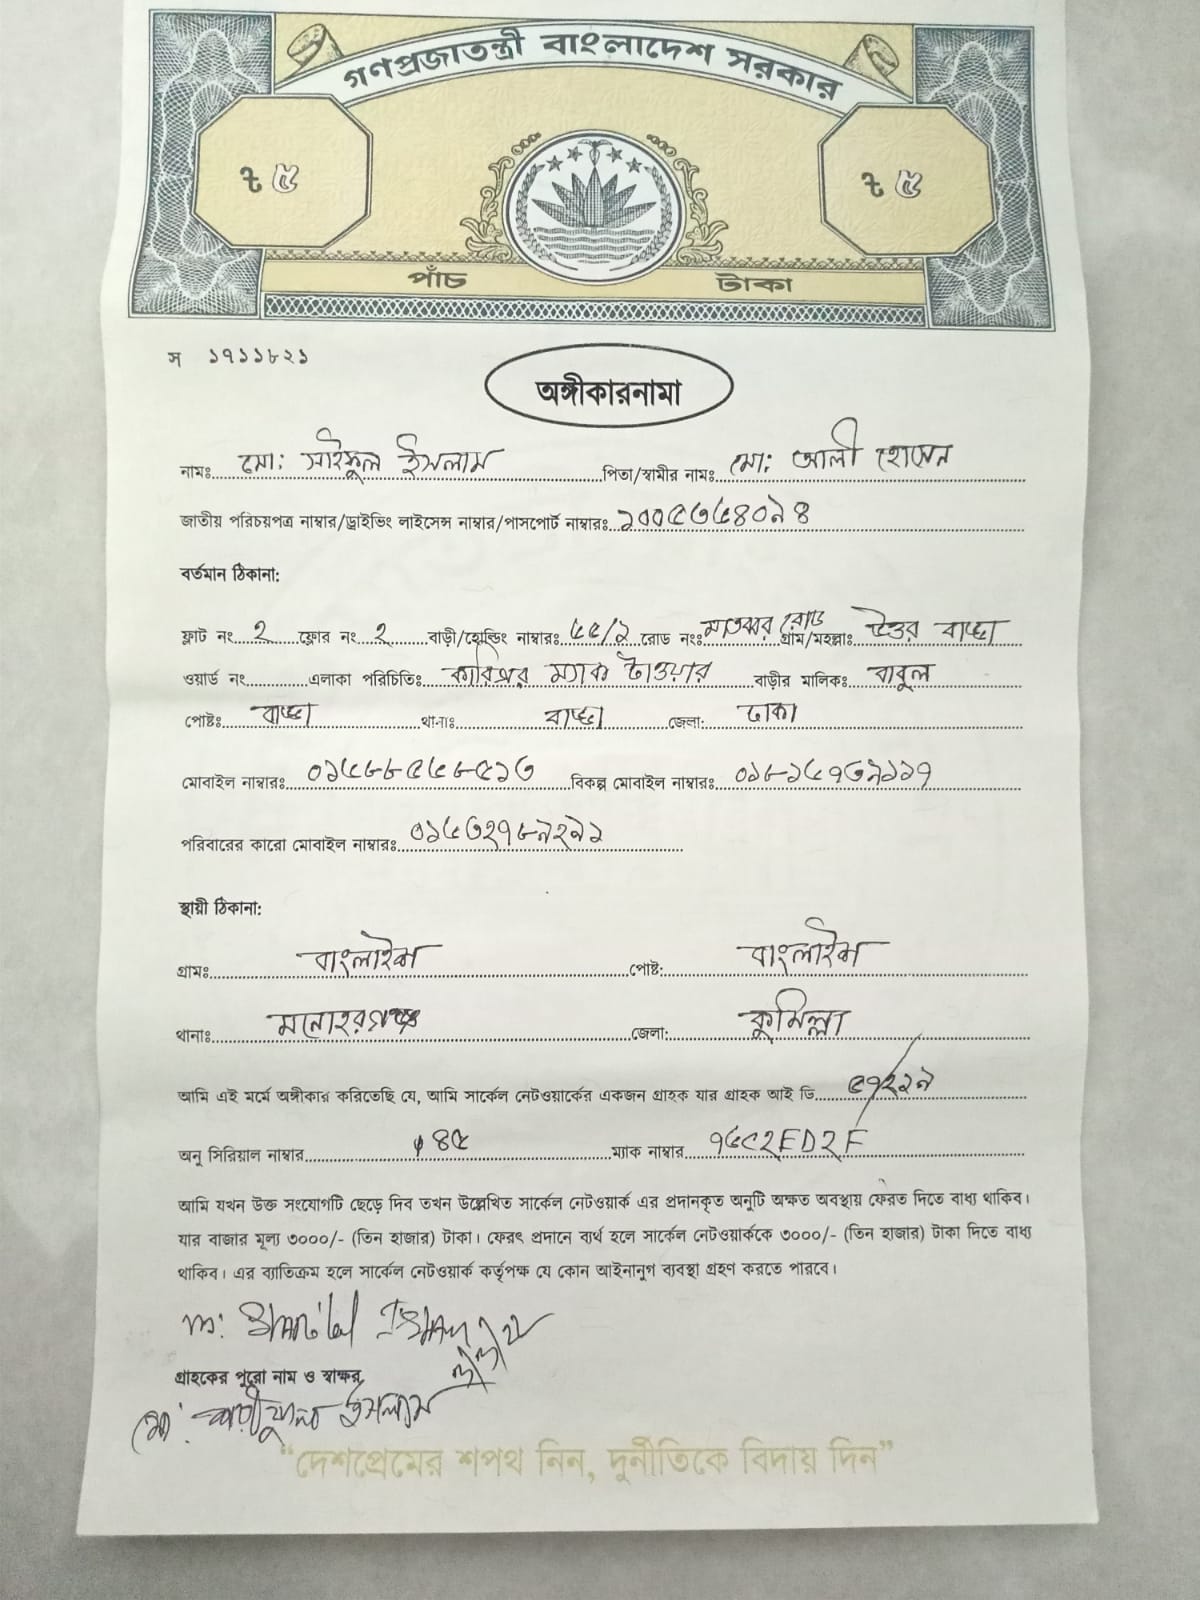 গণপ্রজাতন্ত্রী বাংলাদেশ সরকার
৳ ৫ ৳ ৫
পাঁচ টাকা
স ১৭১১৮২১
অঙ্গীকারনামা
নামঃ মো: সাইফুল ইসলাম পিতা/স্বামীর নাম: মো: আলী হোসেন
জাতীয় পরিচয়পত্র নাম্বার/ড্রাইভিং লাইসেন্স নাম্বার/পাসপোর্ট নাম্বারঃ
বর্তমান ঠিকানা:
ফ্লাট নং ২ ফ্লোর নং ২ বাড়ী/হোল্ডিং নাম্বারঃ ৫৫/১ রোড নং: মাতব্বর রোড গ্রাম/মহল্লাঃ উত্তর বাড্ডা
ওয়ার্ড নং এলাকা পরিচিতিঃ ম্যাক টাওয়ার বাড়ীর মালিকঃ বাবুল
পোষ্টঃ বাড্ডা থানাঃ বাড্ডা জেলা: ঢাকা
মোবাইল নাম্বারঃ বিকল্প মোবাইল নাম্বারঃ
পরিবারের কারো মোবাইল নাম্বারঃ
স্থায়ী ঠিকানা:
গ্রামঃ বাংলাইশ পোষ্ট: বাংলাইশ
থানাঃ মনোহরগঞ্জ জেলা: কুমিল্লা
আমি এই মর্মে অঙ্গীকার করিতেছি যে, আমি সার্কেল নেটওয়ার্কের একজন গ্রাহক যার গ্রাহক আই ডি
অনু সিরিয়াল নাম্বার ৪৫ ম্যাক নাম্বার
আমি যখন উক্ত সংযোগটি ছেড়ে দিব তখন উল্লেখিত সার্কেল নেটওয়ার্ক এর প্রদানকৃত অনুটি অক্ষত অবস্থায় ফেরত দিতে বাধ্য থাকিব।
যার বাজার মূল্য ৩০০০/- (তিন হাজার) টাকা। ফেরৎ প্রদানে ব্যর্থ হলে সার্কেল নেটওয়ার্ককে ৩০০০/- (তিন হাজার) টাকা দিতে বাধ্য
থাকিব। এর ব্যাতিক্রম হলে সার্কেল নেটওয়ার্ক কর্তৃপক্ষ যে কোন আইনানুগ ব্যবস্থা গ্রহণ করতে পারবে।
গ্রাহকের পুরো নাম ও স্বাক্ষর
মো: ইসলাম
“দেশপ্রেমের শপথ নিন, দুর্নীতিকে বিদায় দিন”